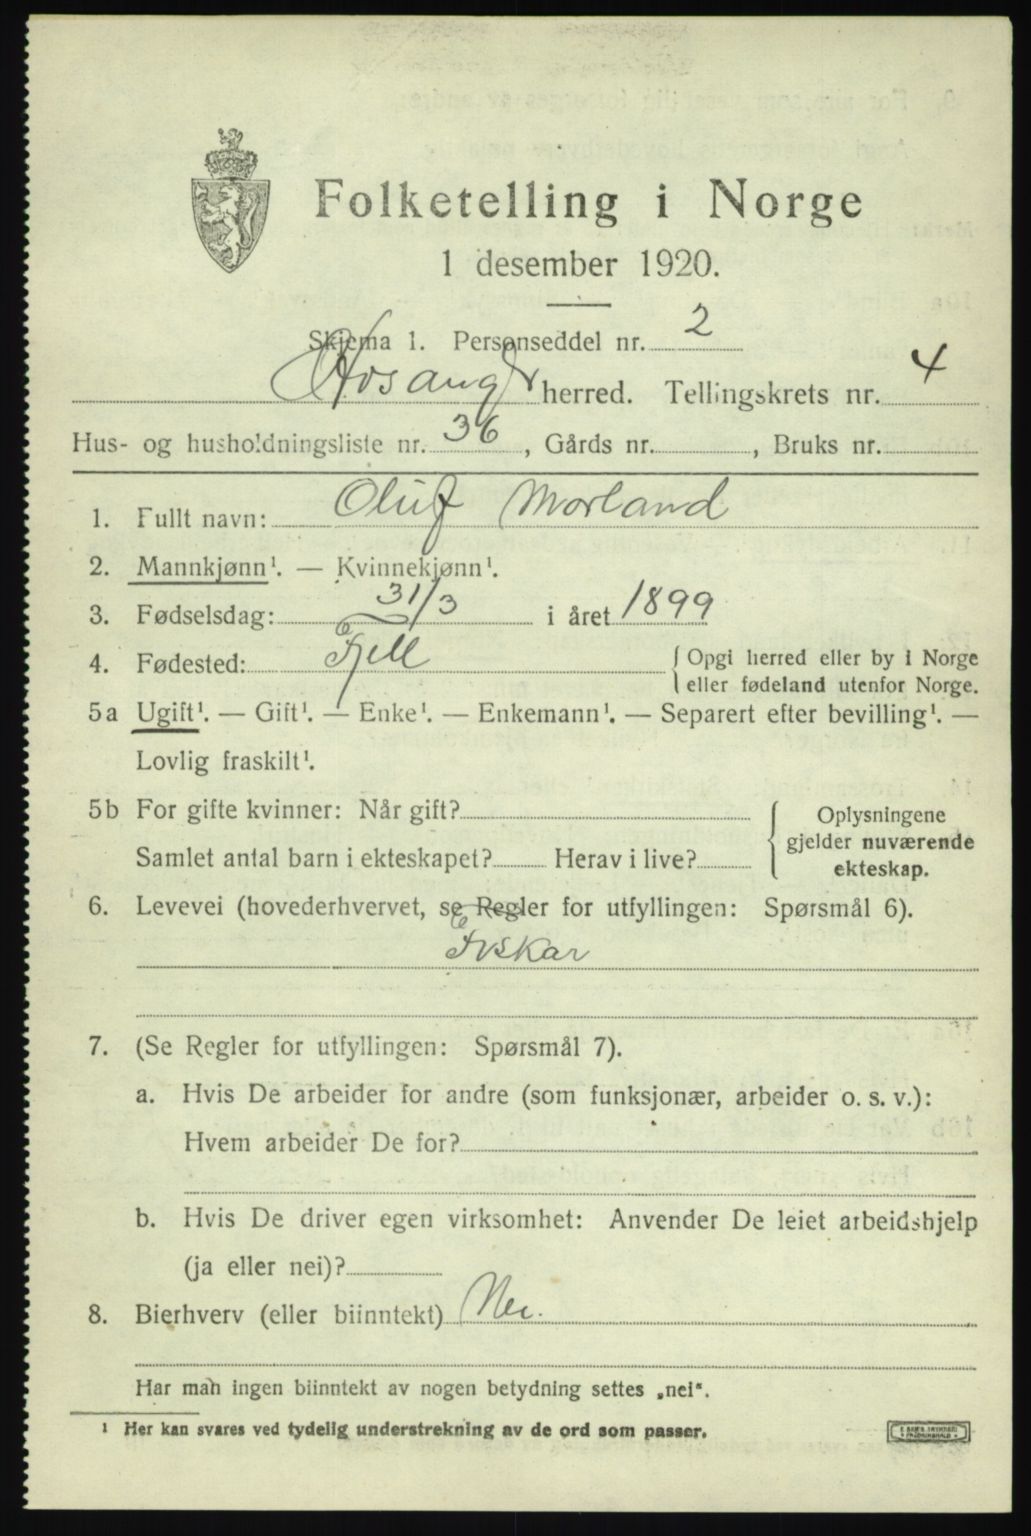 Folketelling i Norge
1 desember 1920.
Skjema 1. Personseddel nr. 2
Hosanger herred. Tellingskrets nr. 4
Hus- og husholdningsliste nr. 36, Gårds nr. , Bruks nr.
1. Fullt navn: Oluf Morland
2. Mannkjønn¹. — Kvinnekjønn¹.
3. Fødselsdag: 31/3 i året 1899
4. Fødested: Fjell { Opgi herred eller by i Norge
eller fødeland utenfor Norge.
5a Ugift¹. — Gift¹. — Enke¹. — Enkemann¹. — Separert efter bevilling¹. —
Lovlig fraskilt¹.
5b For gifte kvinner: Når gift?
Samlet antal barn i ekteskapet? Herav i live?
{ Oplysningene
gjelder nuværende
ekteskap.
6. Levevei (hovederhvervet, se Regler for utfyllingen: Spørsmål 6).
Fiskar
7. (Se Regler for utfyllingen: Spørsmål 7).
a. Hvis De arbeider for andre (som funksjonær, arbeider o. s. v.):
Hvem arbeider De for?
b. Hvis De driver egen virksomhet: Anvender De leiet arbeidshjelp
(ja eller nei)?
8. Bierhverv (eller biinntekt) Nei.
Har man ingen biinntekt av nogen betydning settes „nei“.
¹ Her kan svares ved tydelig understrekning av de ord som passer.